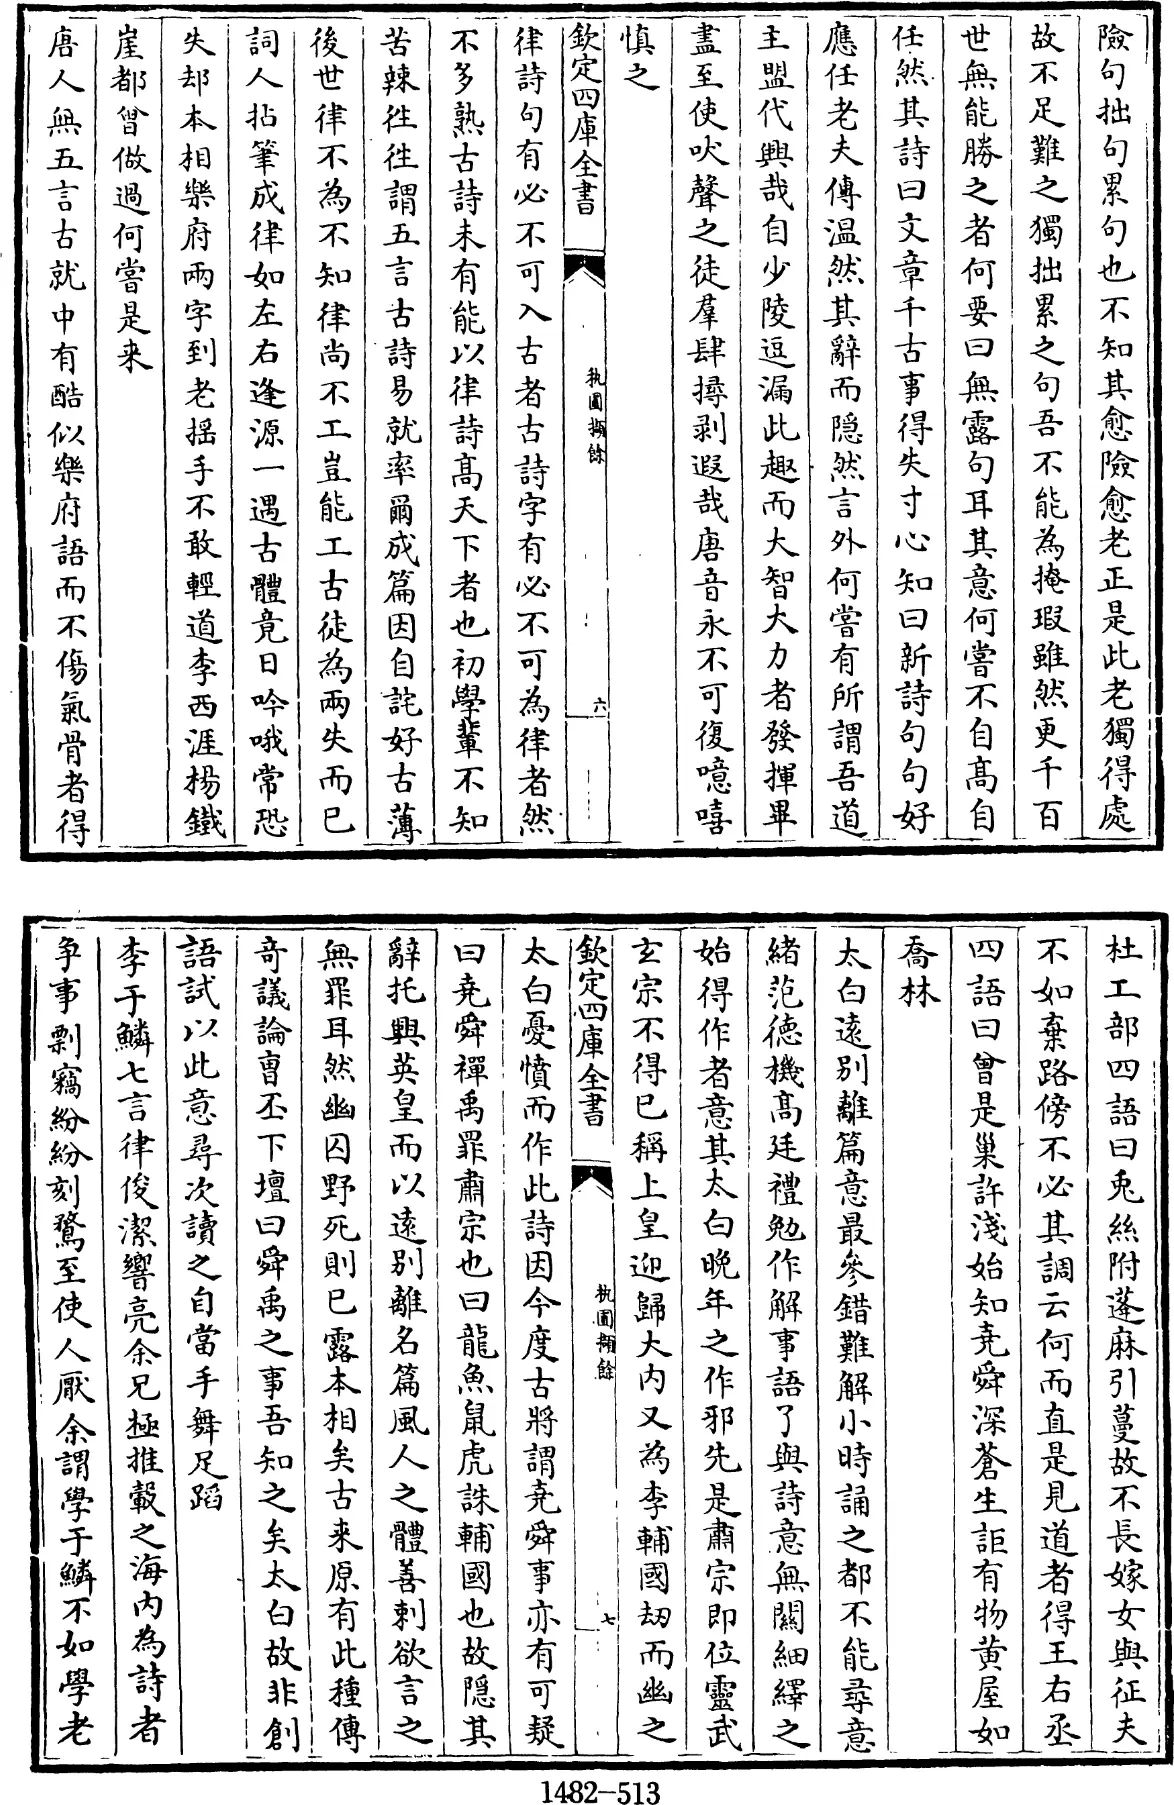 險句拙句累句也不知其愈險愈老正是此老獨得處
故不足難之獨拙累之句吾不能為掩瑕雖然更千百
世無能勝之者何要曰無露句耳其意何嘗不自髙自
任然其詩曰文章千古事得失寸心知曰新詩句句好
應任老夫傳温然其辭而隠然言外何嘗有所謂吾道
主盟代興哉自少陵逗漏此趣而大智大力者發揮畢
盡至使吠聲之徒羣肆撏剥遐哉唐音永不可復噫嘻
慎之
欽定四庫全書
執圃擷餘
六
律詩句有必不可入古者古詩字有必不可為律者然
不多熟古詩未有能以律詩髙天下者也初學輩不知
苦辣徃徃謂五言古詩易就率爾成篇因自詫好古薄
後世律不為不知律尚不工豈能工古徒為兩失而已
詞人拈筆成律如左右逢源一遇古體竟日吟哦常恐
失却本相樂府兩字到老揺手不敢輕道李西涯楊鐵
崖都曾做過何嘗是来
唐人無五言古就中有酷似樂府語而不傷氣骨者得
杜工部四語曰兎絲附蓬麻引蔓故不長嫁女與征夫
不如棄路傍不必其調云何而直是見道者得王右丞
四語曰曾是巢許淺始知堯舜深蒼生詎有物黄屋如
喬林
太白逺别離篇意最參錯難解小時誦之都不能尋意
緒范德機髙廷禮勉作解事語了與詩意無闗細繹之
始得作者意其太白晚年之作邪先是肅宗即位靈武
玄宗不得已稱上皇迎歸大内又為李輔國刼而幽之
欽定四庫全書
執圃擷餘
七
太白憂憤而作此詩因今度古將謂堯舜事亦有可疑
曰堯舜禪禹罪肅宗也曰龍魚鼠虎誅輔國也故隠其
辭托興英皇而以逺别離名篇風人之體善刺欲言之
無罪耳然幽囚野死則已露本相矣古来原有此種傳
竒議論曹丕下壇曰舜禹之事吾知之矣太白故非創
語試以此意尋次讀之自當手舞足蹈
李于鱗七言律俊潔響亮余兄極推轂之海内為詩者
争事剽竊紛紛刻鶩至使人厭余謂學于鱗不如學老
1482-513